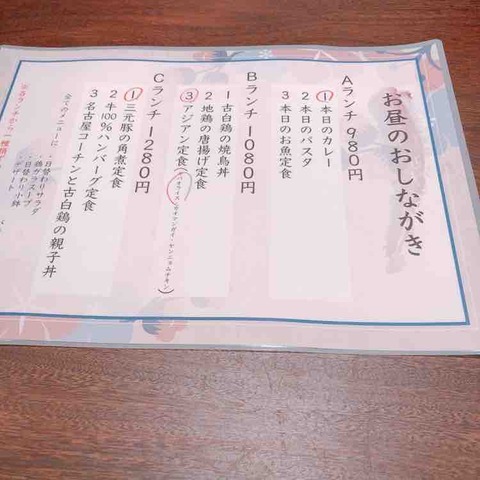 お昼のおしながき
Aランチ 980円
① 本日のカレー
2 本日のパスタ
3 本日のお魚定食
Bランチ 1080円
1 古白鶏の焼鳥丼
2 地鶏の唐揚げ定食
③ アジアン定食
Cランチ 1280円
① 三元豚の角煮定食
2 牛100%ハンバーグ定食
3 名古屋コーチンと古白鶏の親子丼
全てのメニューに
・日替わりサラダ
・鶏ガラスープ
・日替わり小鉢
・デザート
※各ランチから一種